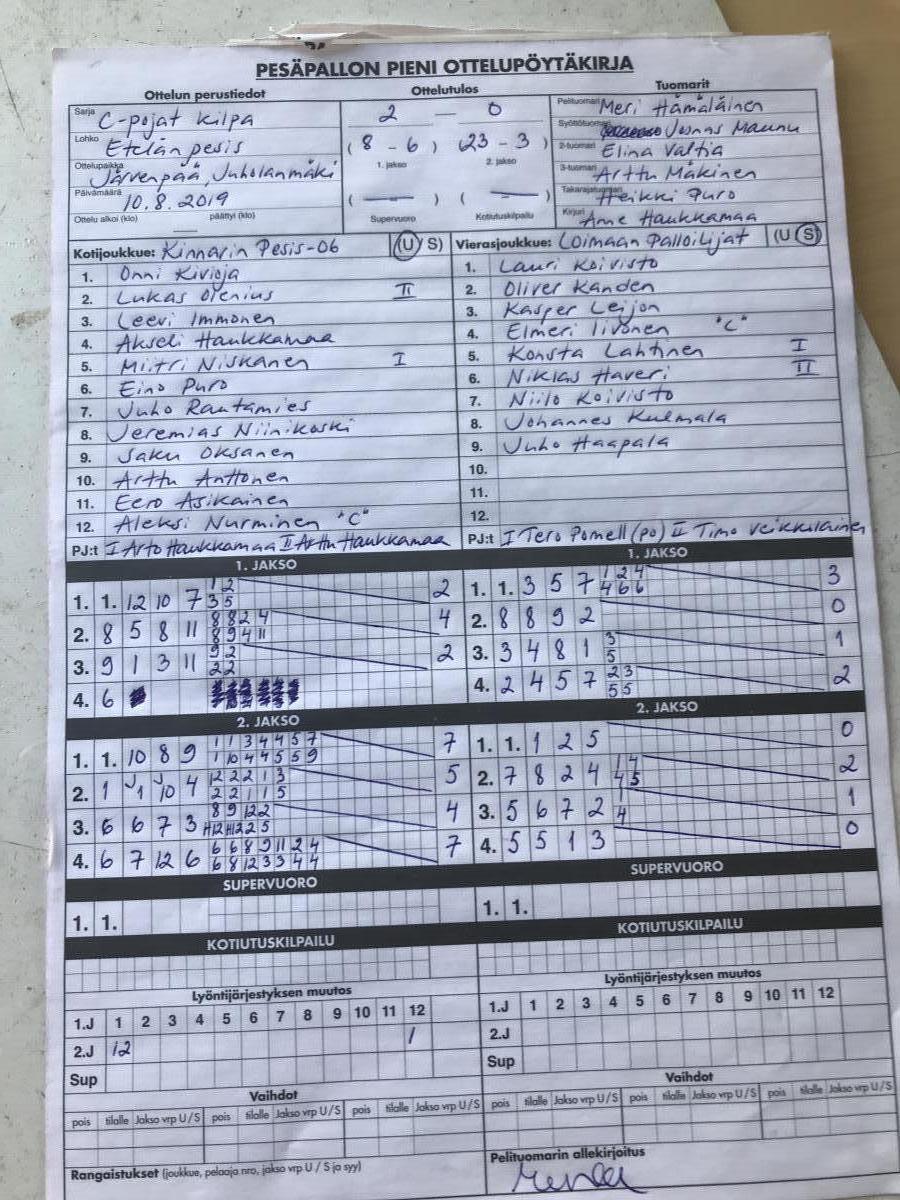 PESÄPALLON PIENI OTTELUPÖYTÄKIRJA
Ottelun perustiedot
Sarja C-pojat kilpa
Lohko Etelän pesis
Ottelupaikka Järvenpää, Juholanmäki
Päivämäärä 10.8.2019
Ottelu alkoi (klo) päättyi (klo)
Ottelutulos
2 — 0
(8 - 6) (23 - 3)
1. jakso 2. jakso
( — ) ( — )
Supervuoro Kotiutuskilpailu
Tuomarit
Pelituomari Meri Hämäläinen
Syöttötuomari Joonas Maunu
2-tuomari Elina Valtia
3-tuomari Arttu Mäkinen
Takarajatuomari Heikki Puro
Kirjuri Anne Haukkamaa
Kotijoukkue: Kinnarin Pesis-06 (U S)
1. Onni Kivioja
2. Lukas Olenius II
3. Leevi Immonen
4. Akseli Haukkamaa
5. Miitri Niskanen I
6. Eino Puro
7. Juho Rautamies
8. Jeremias Niinikoski
9. Saku Oksanen
10. Arttu Anttonen
11. Eero Asikainen
12. Aleksi Nurminen "C"
PJ:t I Arto Haukkamaa II Arttu Haukkamaa
Vierasjoukkue: Loimaan Palloilijat (U S)
1. Lauri Koivisto
2. Oliver Kanden
3. Kasper Leijon
4. Elmeri Iivonen "C"
5. Konsta Lahtinen I
6. Niklas Haveri II
7. Niilo Koivisto
8. Johannes Kulmala
9. Juho Haapala
10.
11.
12.
PJ:t I Tero Pomell (po) II Timo Veikkolainen
1. JAKSO
1. 1. 12 10 7 1 2 2
3 5
2. 8 5 8 11 8 8 2 4 4
8 9 4 11
3. 9 1 3 11 9 2 2
2 2
4. 6
1. JAKSO
1. 1. 3 5 7 1 2 4 3
4 6 6
2. 8 8 9 2 0
3. 3 4 8 1 3 1
5
4. 2 4 5 7 2 3 2
5 5
2. JAKSO
1. 1. 10 8 9 1 1 3 4 4 5 7 7
1 10 4 4 5 5 9
2. 1 1 10 4 12 2 2 1 3 5
2 2 1 1 5
3. 6 6 7 3 8 9 12 2 4
4. 6 7 12 6 6 6 8 9 11 2 4 7
6 8 12 3 3 4 4
2. JAKSO
1. 1. 1 2 5 0
2. 7 8 2 4 1 4 2
4 5
3. 5 6 7 2 1 1
4
4. 5 5 1 3 0
SUPERVUORO
1. 1.
SUPERVUORO
1. 1.
KOTIUTUSKILPAILU
KOTIUTUSKILPAILU
Lyöntijärjestyksen muutos
1.J 1 2 3 4 5 6 7 8 9 10 11 12
2.J 12 1
Sup
Lyöntijärjestyksen muutos
1.J 1 2 3 4 5 6 7 8 9 10 11 12
2.J
Sup
Vaihdot
pois tilalle Jakso vrp U/S pois tilalle Jakso vrp U/S pois tilalle Jakso vrp U/S
Vaihdot
pois tilalle Jakso vrp U/S pois tilalle Jakso vrp U/S pois tilalle Jakso vrp U/S
Rangaistukset (joukkue, pelaaja nro, jakso vrp U / S ja syy)
Pelituomarin allekirjoitus